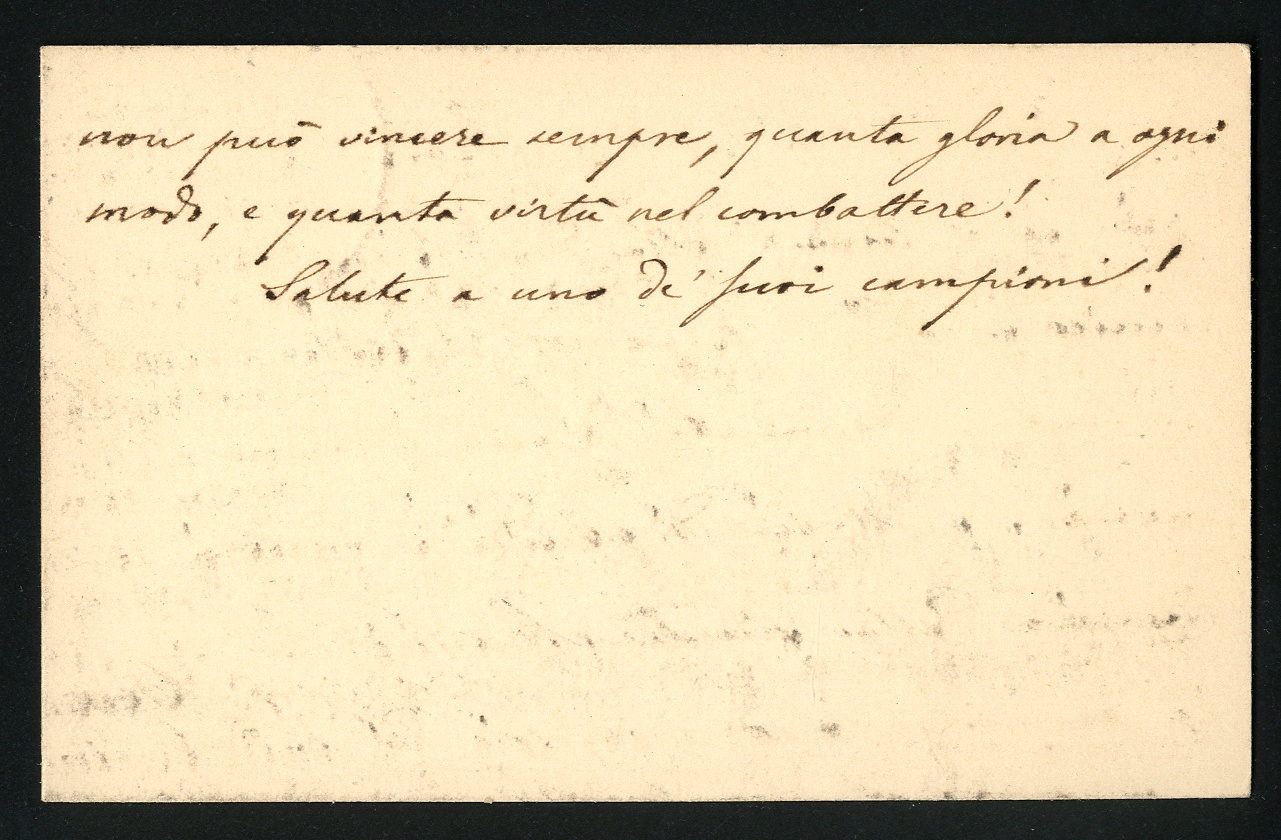 non può vincere sempre, quanta gloria a ogni
modo, e quanta virtù nel combattere!
Salute a uno de' suoi campioni!